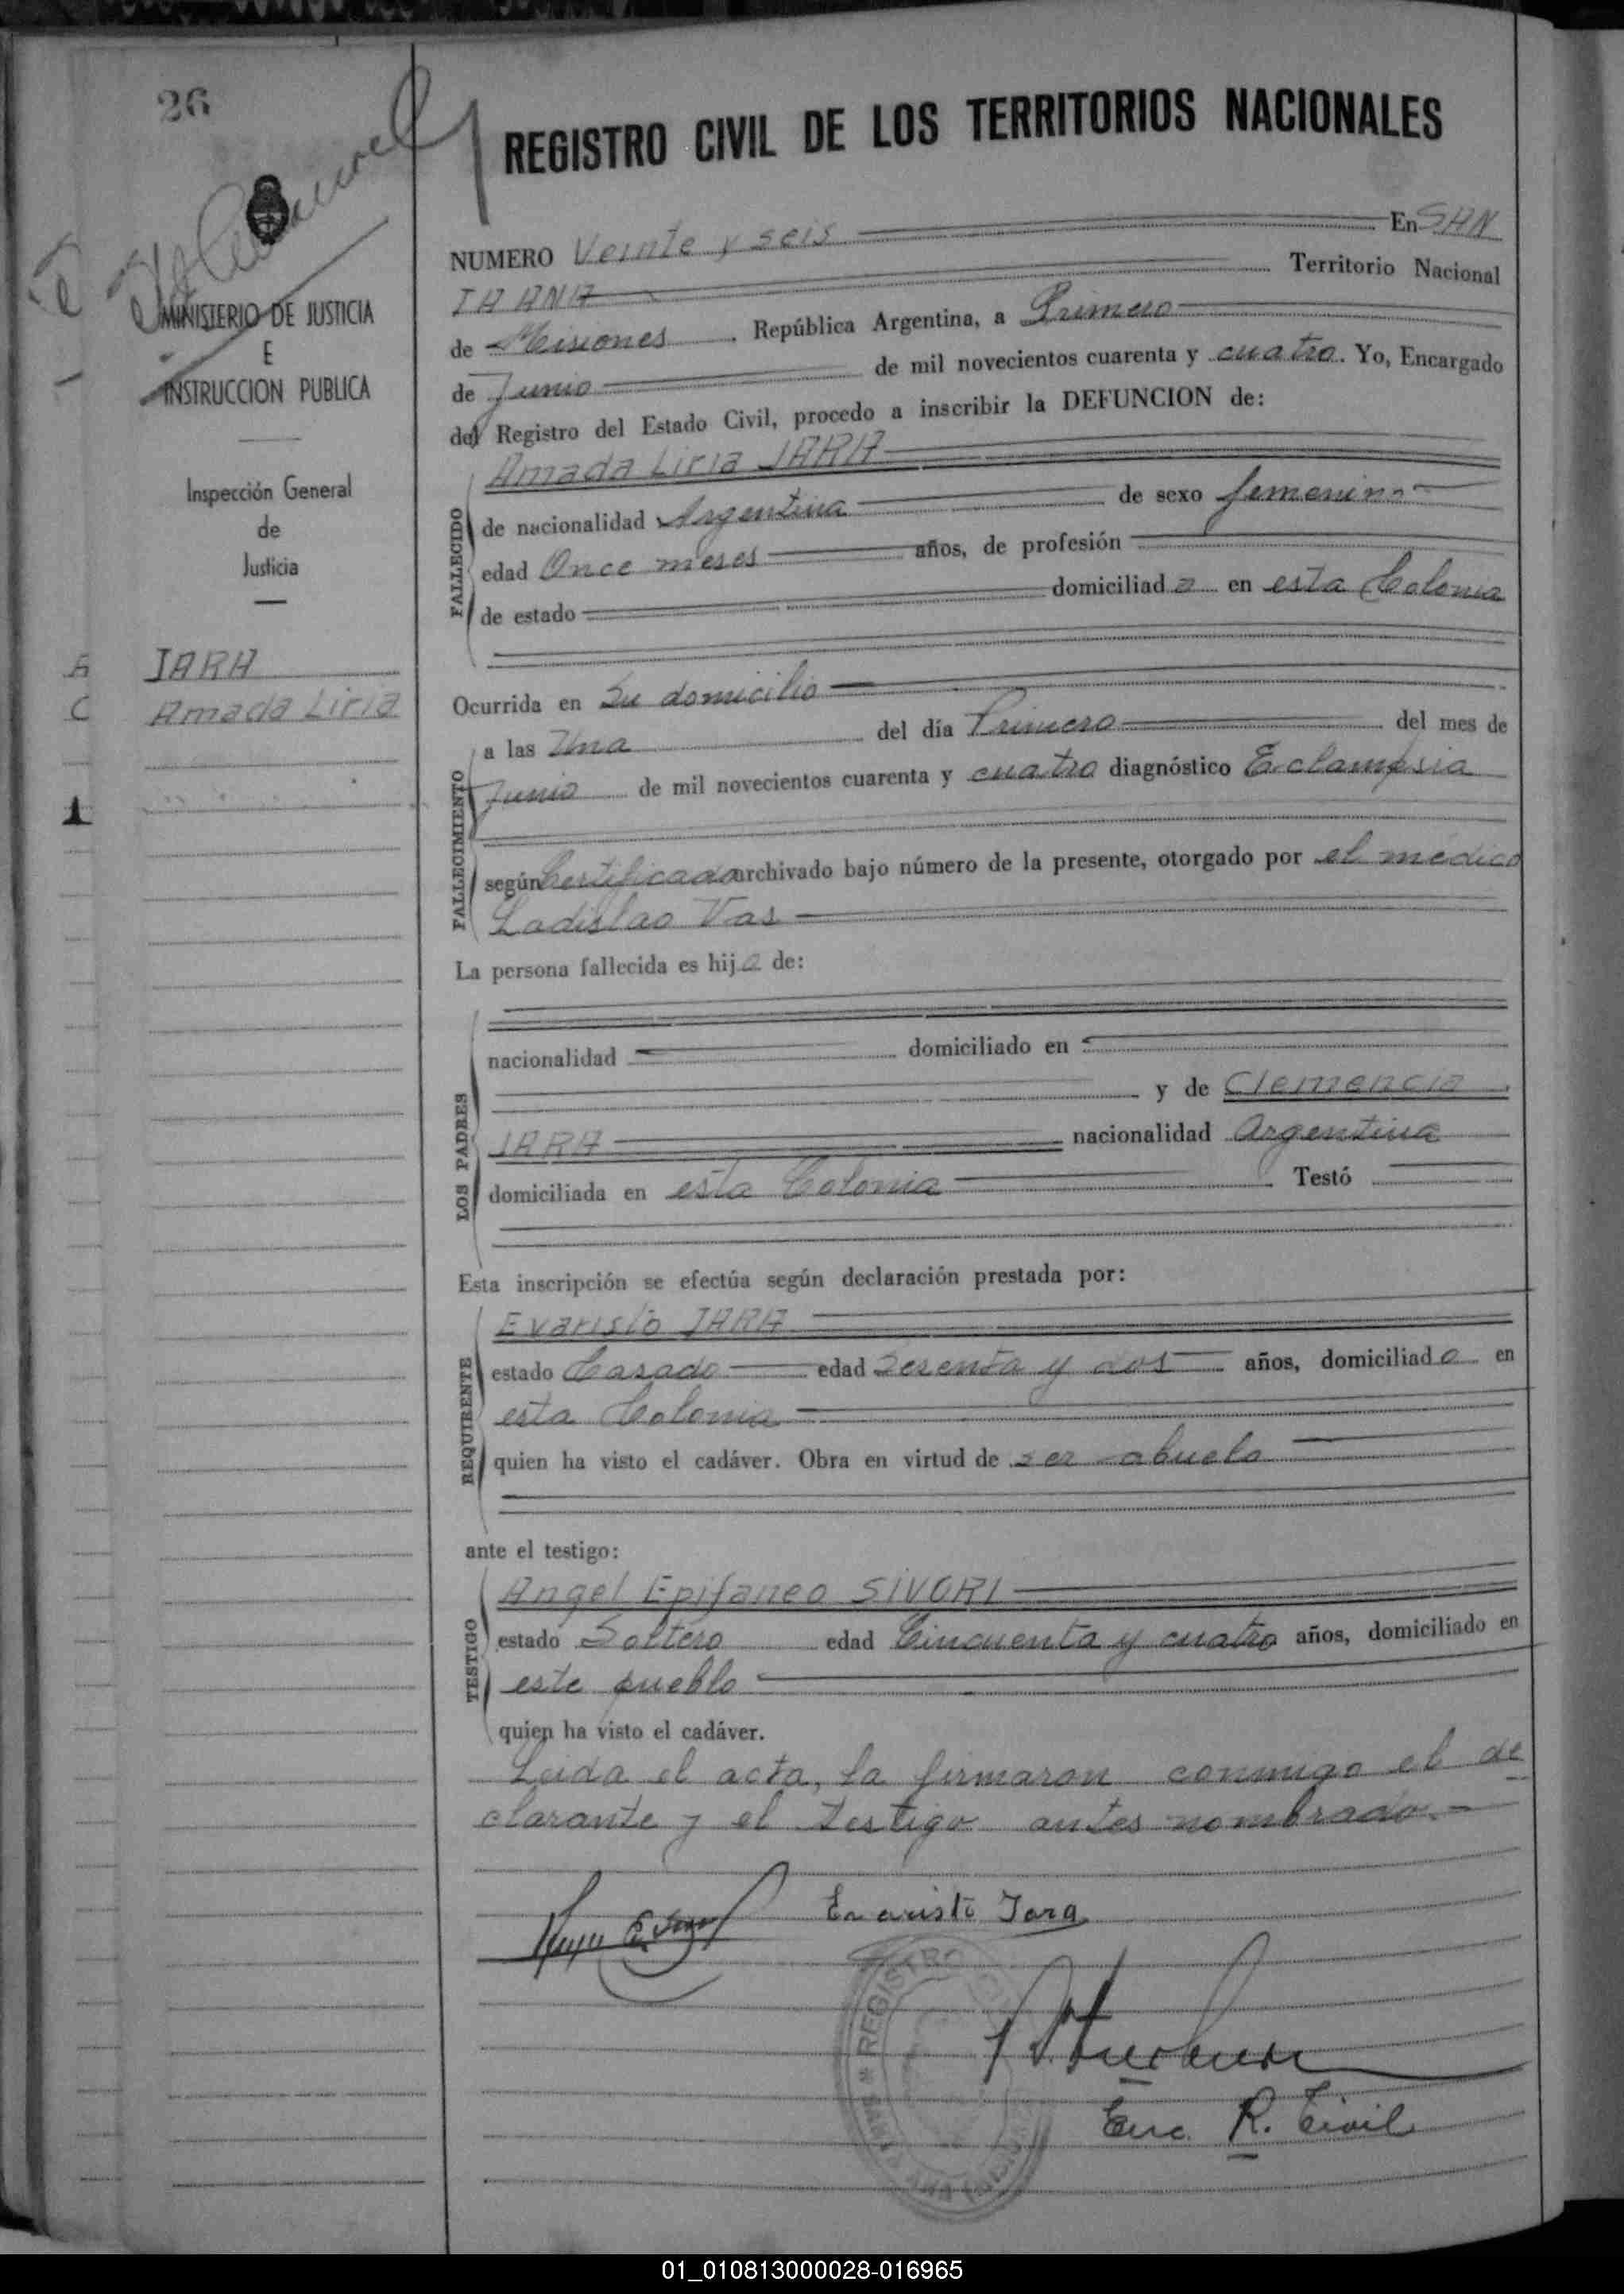 26
REGISTRO CIVIL DE LOS TERRITORIOS NACIONALES
MINISTERIO DE JUSTICIA
E
INSTRUCCION PUBLICA
Inspección General
de
Justicia
A JARA
C Amada Liria
1
NUMERO Veinte y seis En SAN
TA ANA Territorio Nacional
de Misiones. República Argentina, a Primero
de Junio de mil novecientos cuarenta y cuatro. Yo, Encargado
del Registro del Estado Civil, procedo a inscribir la DEFUNCION de:
FALLECIDO
Amada Liria JARA
de nacionalidad Argentina de sexo femenino
edad Once meses años, de profesión
de estado domiciliada en esta Colonia
FALLECIMIENTO
Ocurrida en Su domicilio
a las Una del día Primero del mes de
Junio de mil novecientos cuarenta y cuatro diagnóstico Eclampsia
según Certificado archivado bajo número de la presente, otorgado por el médico
Ladislao Vas
La persona fallecida es hija de:
LOS PADRES
nacionalidad domiciliado en
y de Clemencia
JARA nacionalidad Argentina
domiciliada en esta Colonia Testó
Esta inscripción se efectúa según declaración prestada por:
REQUIRENTE
Evaristo JARA
estado Casado edad Sesenta y dos años, domiciliado en
esta Colonia
quien ha visto el cadáver. Obra en virtud de ser abuelo
ante el testigo:
TESTIGO
Angel Epifaneo SIVORI
estado Soltero edad Cincuenta y cuatro años, domiciliado en
este pueblo
quien ha visto el cadáver.
Leida el acta, la firmaron conmigo el de
clarante y el testigo antes nombrado.-
Evaristo Jara
REGISTRO
Enc. R. Civil
01_010813000028-016965